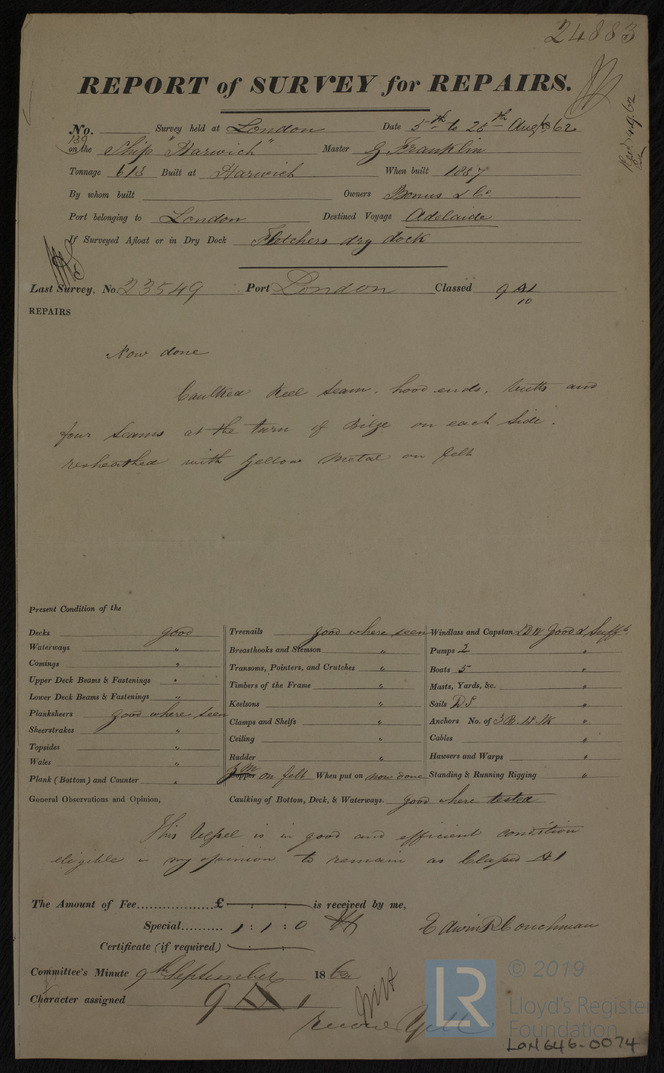 24883
REPORT of SURVEY for REPAIRS.
No. Survey held at London Date 5th to 26th Augst 62
on the Ship "Harwich" Master G Franklin
Tonnage 613 Built at Harwich When built 1857
By whom built Owners Bonus & Co
Port belonging to London Destined Voyage Adelaide
If Surveyed Afloat or in Dry Dock Fletchers dry dock
Last Survey, No. 23549 Port London Classed 9 A1
10
REPAIRS
Now done
Caulked Keel Seam, hood ends, butts and
four Seams at the turn of Bilge on each Side,
resheathed with Yellow Metal on felt
Present Condition of the
Decks good Treenails good where seen Windlass and Capstan good & Sufft
Waterways " Breasthooks and Stemson " Pumps 2 "
Comings " Transoms, Pointers, and Crutches " Boats 5 "
Upper Deck Beams & Fastenings " Timbers of the Frame " Masts, Yards, &c. "
Lower Deck Beams & Fastenings " Keelsons " Sails "
Planksheers good where seen Clamps and Shelfs " Anchors No. of 3B. 1S. 1K "
Sheerstrakes " Ceiling " Cables "
Topsides " Rudder " Hawsers and Warps "
Wales "
Plank (Bottom) and Counter " Copper YM on felt When put on now done Standing & Running Rigging "
General Observations and Opinion, Caulking of Bottom, Deck, & Waterways. good where tested
This Vessel is in good and efficient condition
eligible in my opinion to remain as Classed A1
The Amount of Fee £ is received by me,
Special 1 : 1 : 0 Edwin R Couchman
Certificate (if required)
Committee's Minute 9th September 1862
Character assigned 9 A 1
© 2019
LR
Lloyd's Register
Foundation
LON646-0074